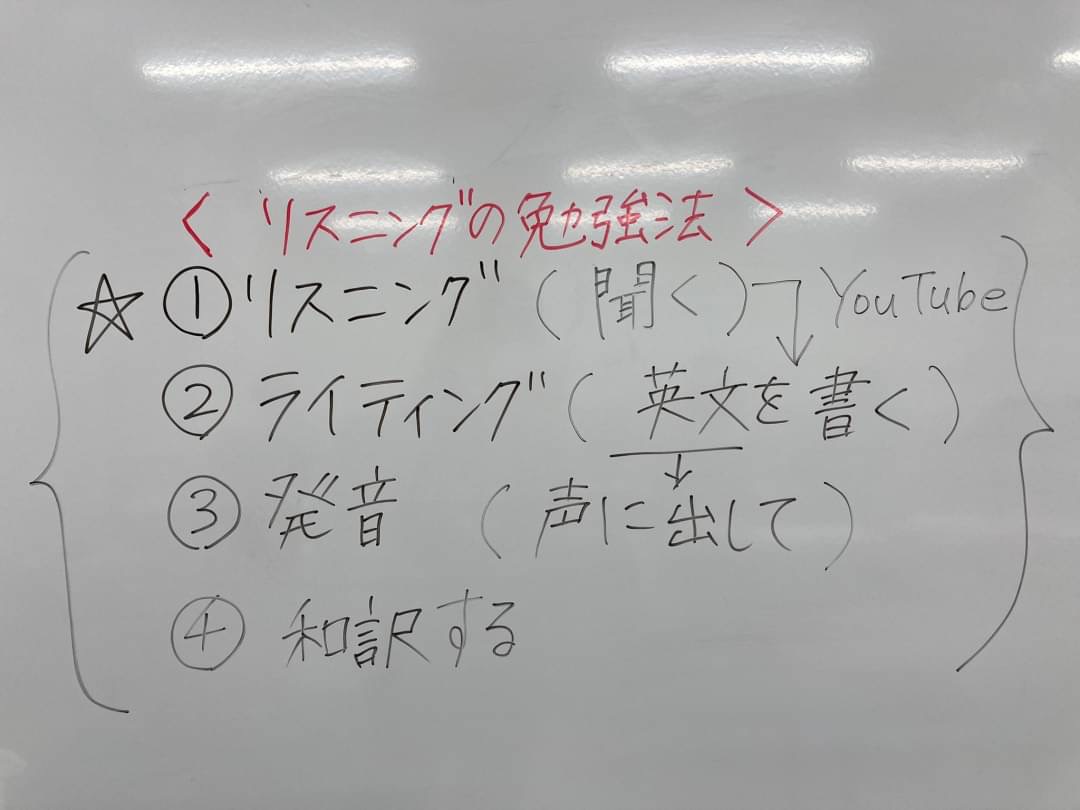 〈 リスニングの勉強法 〉
☆ ① リスニング (聞く) YouTube
② ライティング (英文を書く)
③ 発音 (声に出して)
④ 和訳する